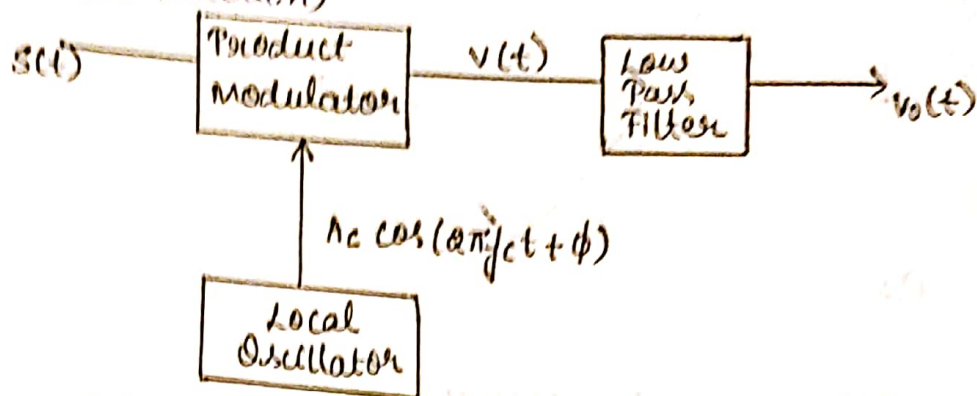 Product
S(t)
Modulator
v(t)
Low
Pass
Filter
v₀(t)
Ac cos(2πfct + φ)
Local
Oscillator